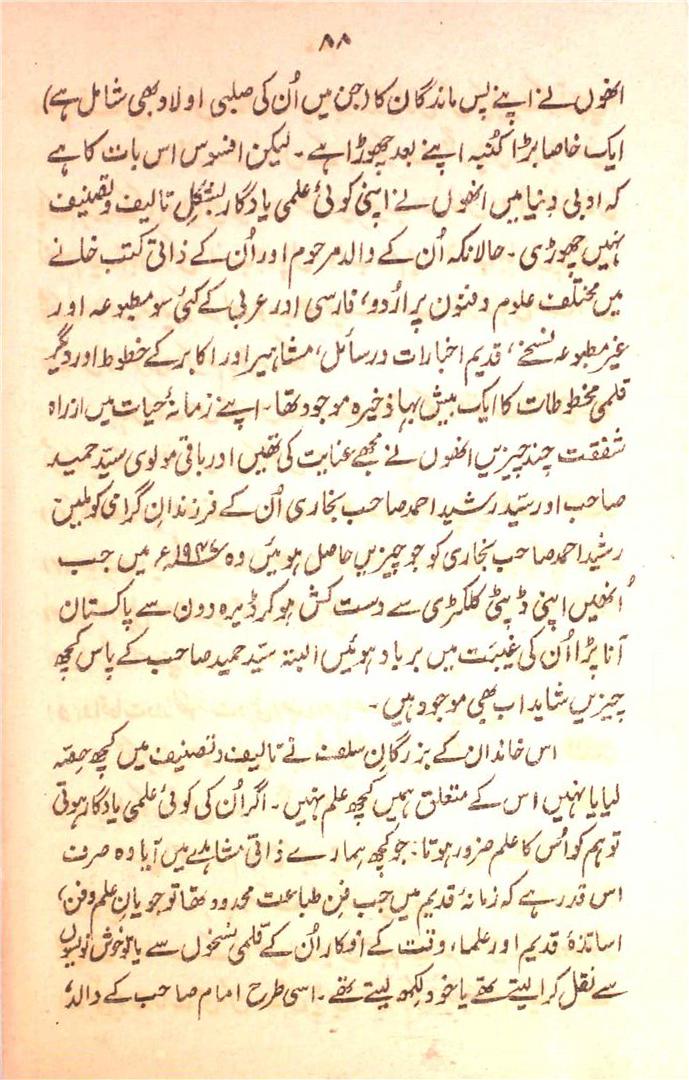 ۸۸
انھوں نے اپنے پس ماندگان کا (جن میں اُن کی صلبی اولاد بھی شامل ہے)
ایک خاصا بڑا کنبہ اپنے بعد چھوڑا ہے ۔ لیکن افسوس اس بات کا ہے
کہ ادبی دنیا میں انھوں نے اپنی کوئی علمی یادگار بشکلِ تالیف و تصنیف
نہیں چھوڑی ۔ حالانکہ اُن کے والد مرحوم اور اُن کے ذاتی کتب خانے
میں مختلف علوم و فنون پر اُردو، فارسی اور عربی کے کئی سو مطبوعہ اور
غیر مطبوعہ نسخے، قدیم اخبارات و رسائل، مشاہیر اور اکابر کے خطوط اور دیگر
قلمی مخطوطات کا ایک بیش بہا ذخیرہ موجود تھا ۔ اپنے زمانۂ حیات میں از راہ
شفقت چند چیزیں انھوں نے مجھے عنایت کی تھیں اور باقی مولوی سیّد حمید
صاحب اور سیّد رشید احمد صاحب بخاری اُن کے فرزندانِ گرامی کو ملیں
رشید احمد صاحب بخاری کو جو چیزیں حاصل ہوئیں وہ ۱۹۴۷ء میں جب
اُنھیں اپنی ڈپٹی کلکٹری سے دست کش ہو کر ڈیرہ دون سے پاکستان
آنا پڑا اُن کی غیبت میں برباد ہوئیں البتہ سیّد حمید صاحب کے پاس کچھ
چیزیں شاید اب بھی موجود ہیں ۔
اس خاندان کے بزرگانِ سلف نے تالیف و تصنیف میں کچھ حصّہ
لیا یا نہیں اس کے متعلق ہمیں کچھ علم نہیں ۔ اگر اُن کی کوئی علمی یادگار ہوتی
تو ہم کو اُس کا علم ضرور ہوتا ۔ جو کچھ ہمارے ذاتی مشاہدے میں آیا وہ صرف
اس قدر ہے کہ زمانۂ قدیم میں جب فنِ طباعت محدود تھا تو جویانِ علم و فن،
اساتذۂ قدیم اور علماء وقت کے افکار اُن کے قلمی نسخوں سے یا تو خوش نویسوں
سے نقل کرا لیتے تھے یا خود لکھ لیتے تھے ۔ اسی طرح امام صاحب کے والد،